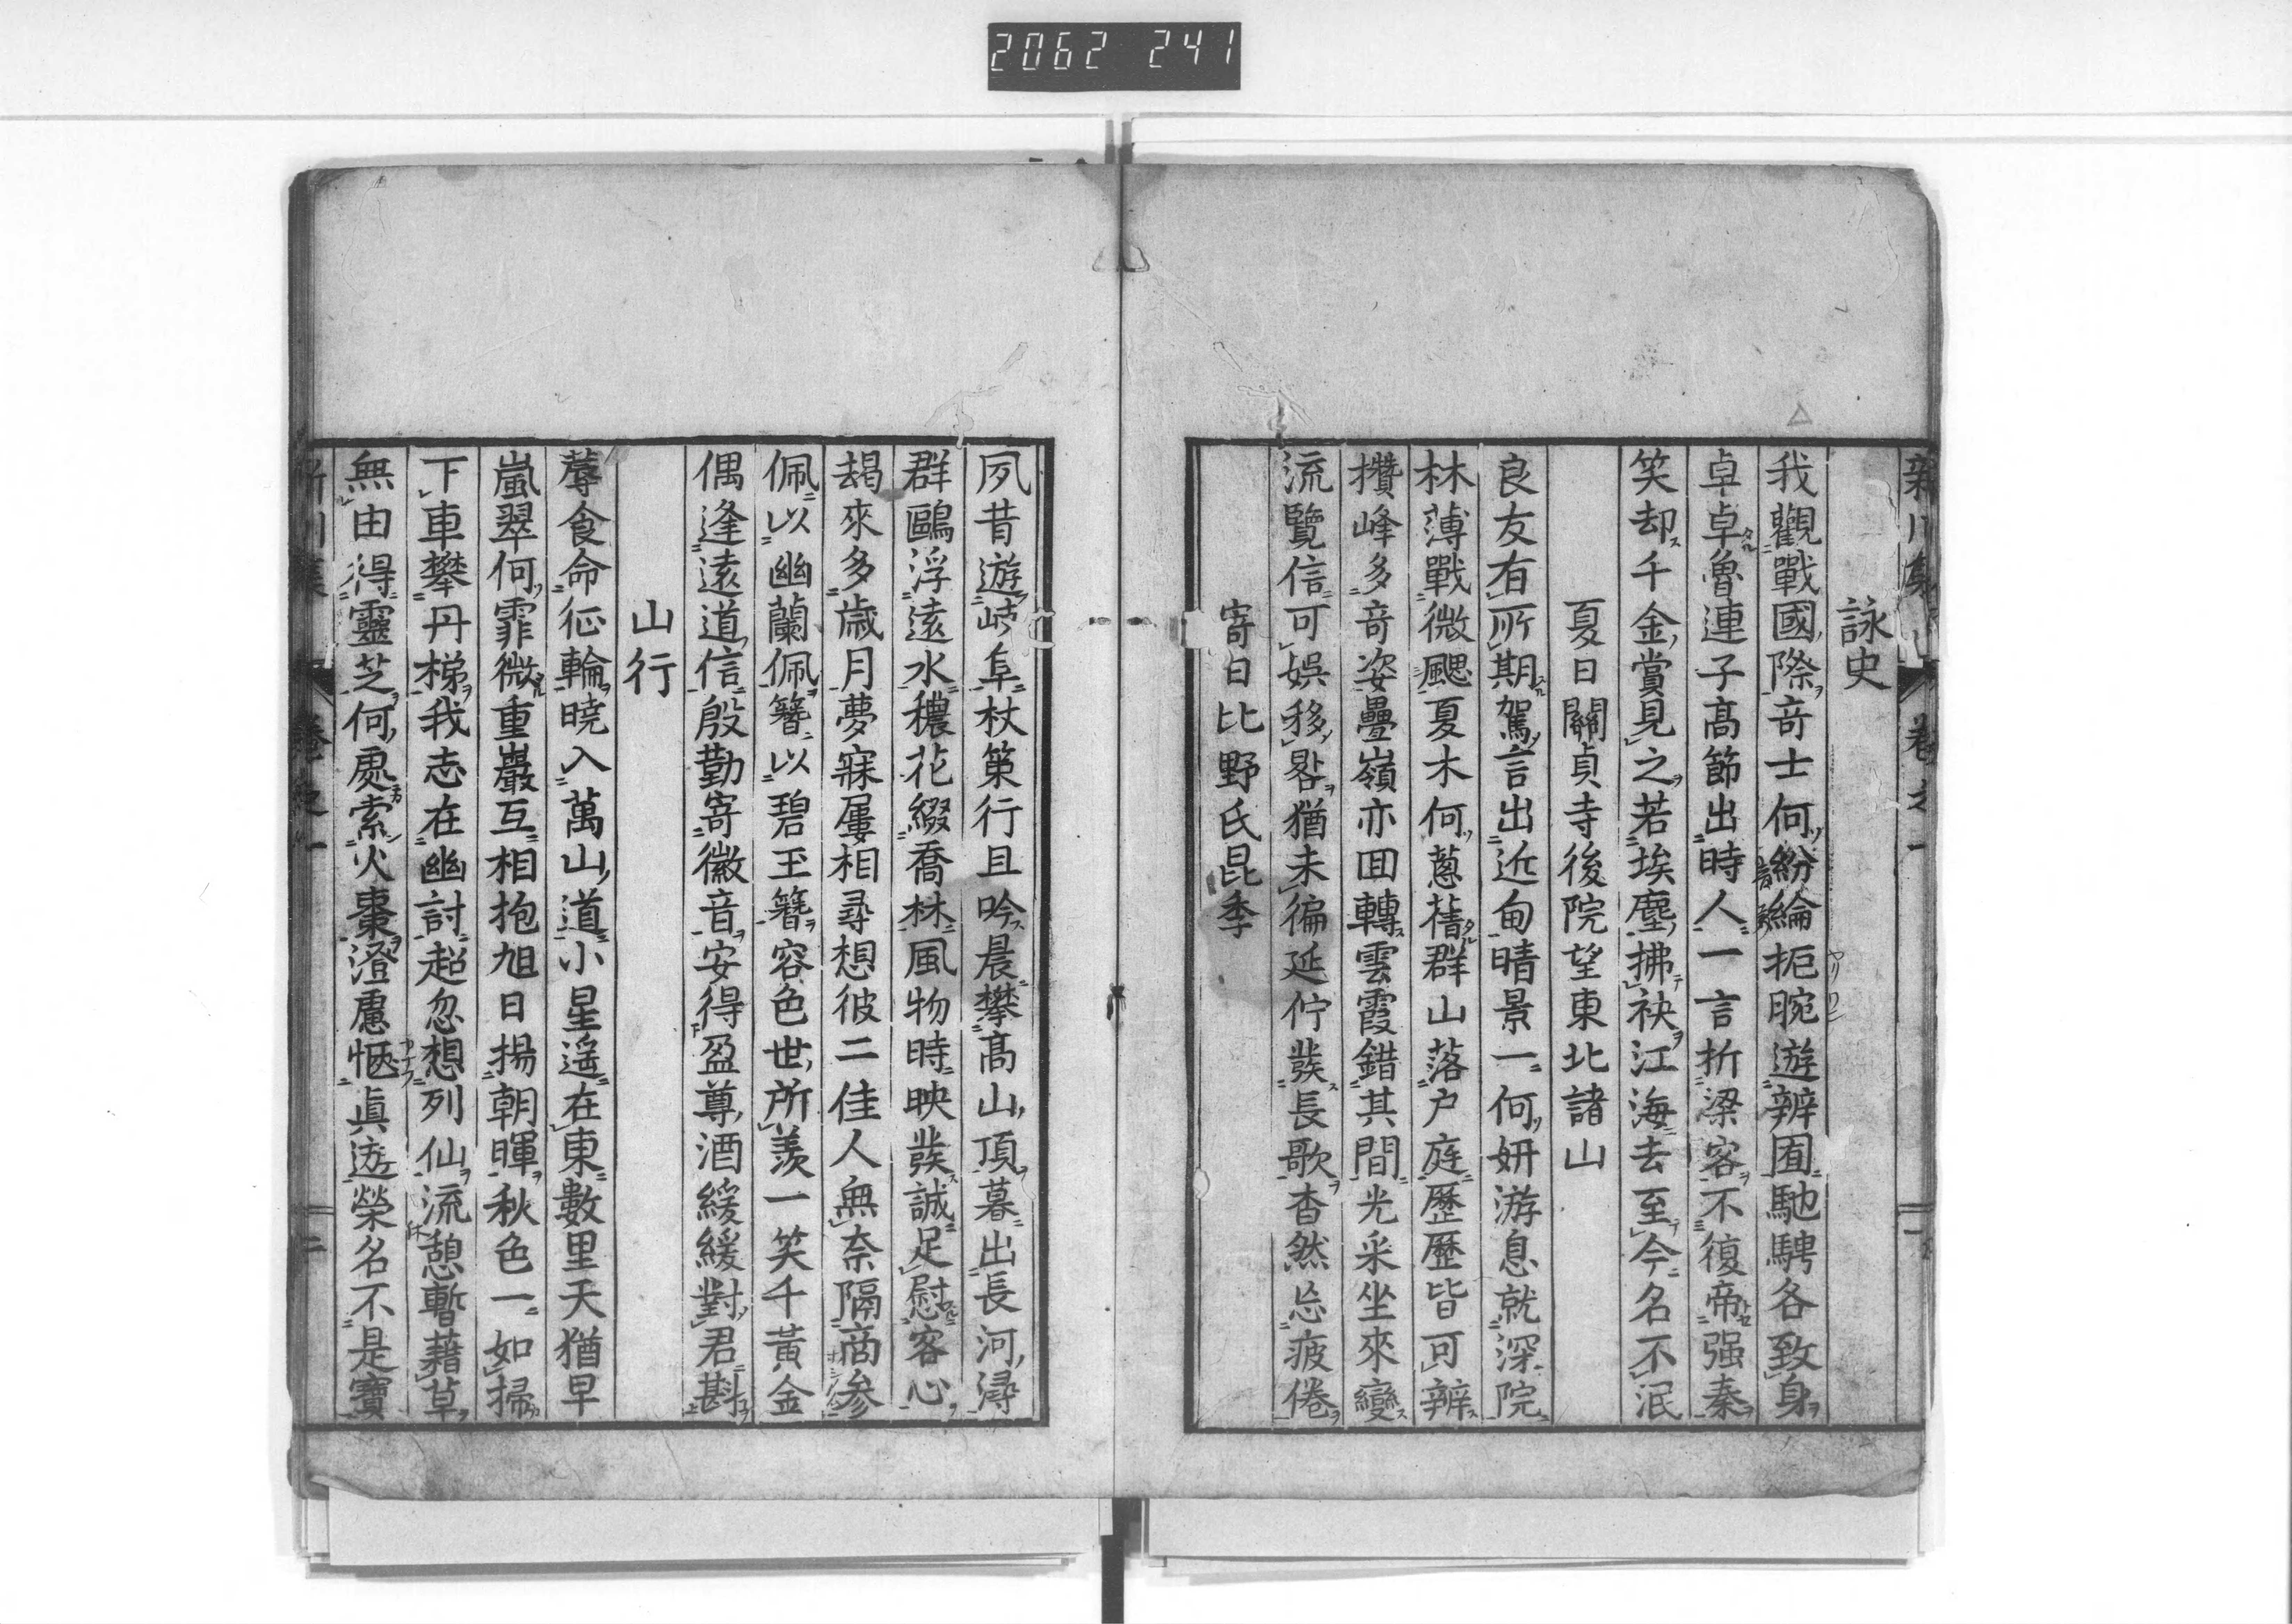 2062 241
詠史
我觀戰國際奇士何紛綸扼腕遊辨囿馳騁各致身
卓卓魯連子高節出時人一言折梁客不復帝强秦
笑却千金賞見之若埃塵拂袂江海去至今名不泯
夏日關貞寺後院望東北諸山
良友有所期駕言出近甸晴景一何妍游息就深院
林薄戰微颸夏木何蔥蒨群山落户庭歷歷皆可辨
攢峰多奇姿疊嶺亦回轉雲霞錯其間光采坐來變
流覽信可娛移晷猶未徧延佇發長歌杳然忘疲倦
寄日比野氏昆季
夙昔遊岐阜杖策行且吟晨攀高山頂暮出長河潯
群鷗浮遠水穠花綴喬林風物時映發誠足慰客心
朅來多歲月夢寐屢相尋想彼二佳人無奈隔商參
佩以幽蘭佩簪以碧玉簪容色世所羨一笑千黃金
偶逢遠道信殷勤寄徽音安得盈尊酒緩緩對君斟
山行
蓐食命征輪曉入萬山道小星遙在東數里天猶早
嵐翠何霏微重巖互相抱旭日揚朝暉秋色一如掃
下車攀丹梯我志在幽討超忽想列仙流憩暫藉草
無由得靈芝何處索火棗澄慮愜眞遊榮名不是寶